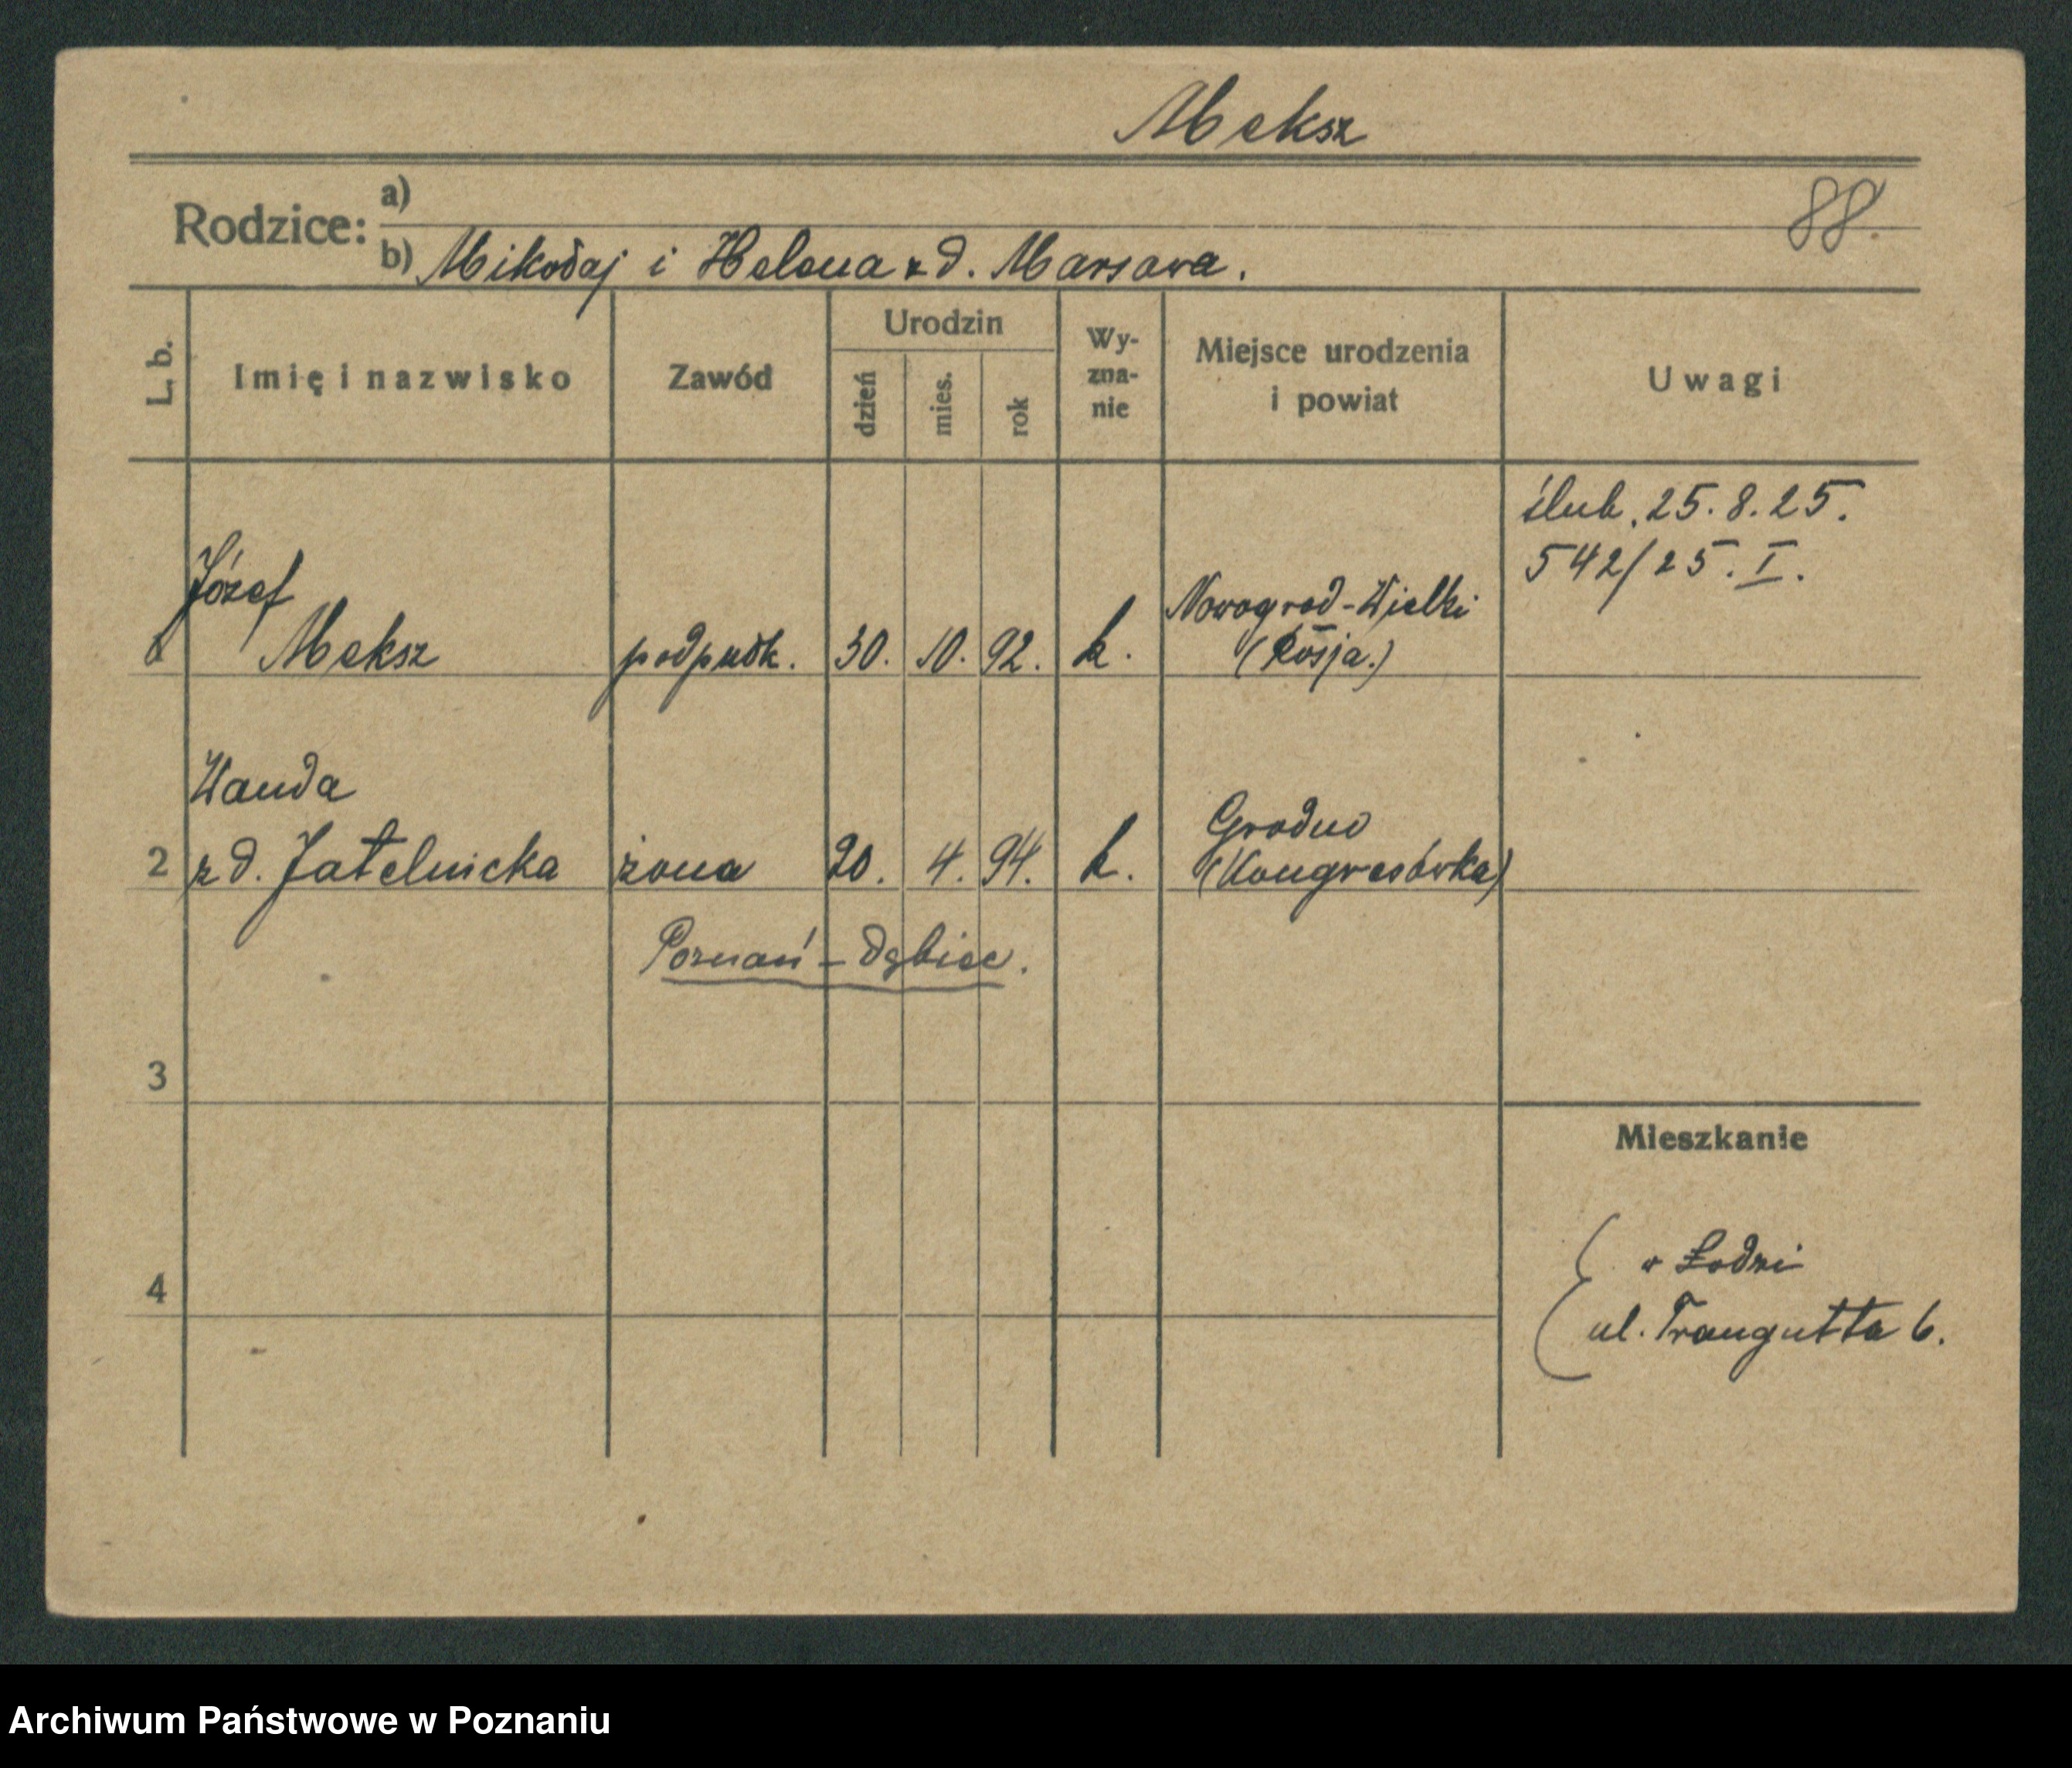 Meksz
Rodzice:
a)
88.
b) Mikołaj i Helena z d. Marsowa.
L. b.
Imię i nazwisko
Zawód
Urodzin
dzień
mies.
rok
Wy-
zna-
nie
Miejsce urodzenia
i powiat
Uwagi
ślub. 25. 8. 25.
542/25. I.
Józef
Nowogrod-Wielki
1 Meksz podpułk. 30. 10. 92. k. (Rosja.)
Wanda
Grodno
2 z d. Jatelnicka żona 20. 4. 94. k. (Kongresówka)
Poznań - Dębiec.
3
Mieszkanie
w Łodzi
4
ul. Traugutta 6.
Archiwum Państwowe w Poznaniu